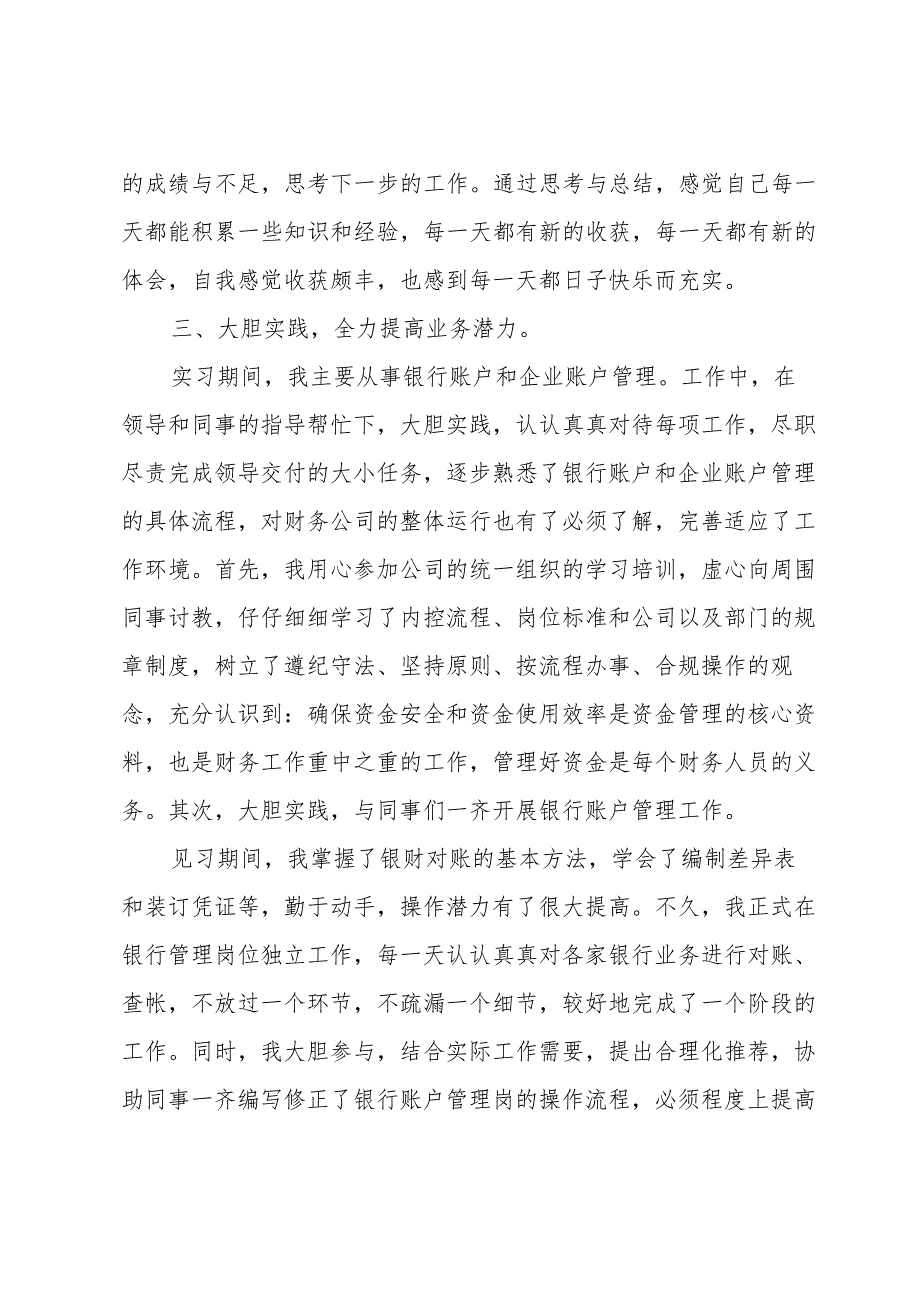 的成绩与不足，思考下一步的工作。通过思考与总结，感觉自己每一
天都能积累一些知识和经验，每一天都有新的收获，每一天都有新的
体会，自我感觉收获颇丰，也感到每一天都日子快乐而充实。
三、大胆实践，全力提高业务潜力。
实习期间，我主要从事银行账户和企业账户管理。工作中，在
领导和同事的指导帮忙下，大胆实践，认认真真对待每项工作，尽职
尽责完成领导交付的大小任务，逐步熟悉了银行账户和企业账户管理
的具体流程，对财务公司的整体运行也有了必须了解，完善适应了工
作环境。首先，我用心参加公司的统一组织的学习培训，虚心向周围
同事讨教，仔仔细细学习了内控流程、岗位标准和公司以及部门的规
章制度，树立了遵纪守法、坚持原则、按流程办事、合规操作的观
念，充分认识到：确保资金安全和资金使用效率是资金管理的核心资
料，也是财务工作重中之重的工作，管理好资金是每个财务人员的义
务。其次，大胆实践，与同事们一齐开展银行账户管理工作。
见习期间，我掌握了银财对账的基本方法，学会了编制差异表
和装订凭证等，勤于动手，操作潜力有了很大提高。不久，我正式在
银行管理岗位独立工作，每一天认认真真对各家银行业务进行对账、
查帐，不放过一个环节，不疏漏一个细节，较好地完成了一个阶段的
工作。同时，我大胆参与，结合实际工作需要，提出合理化推荐，协
助同事一齐编写修正了银行账户管理岗的操作流程，必须程度上提高